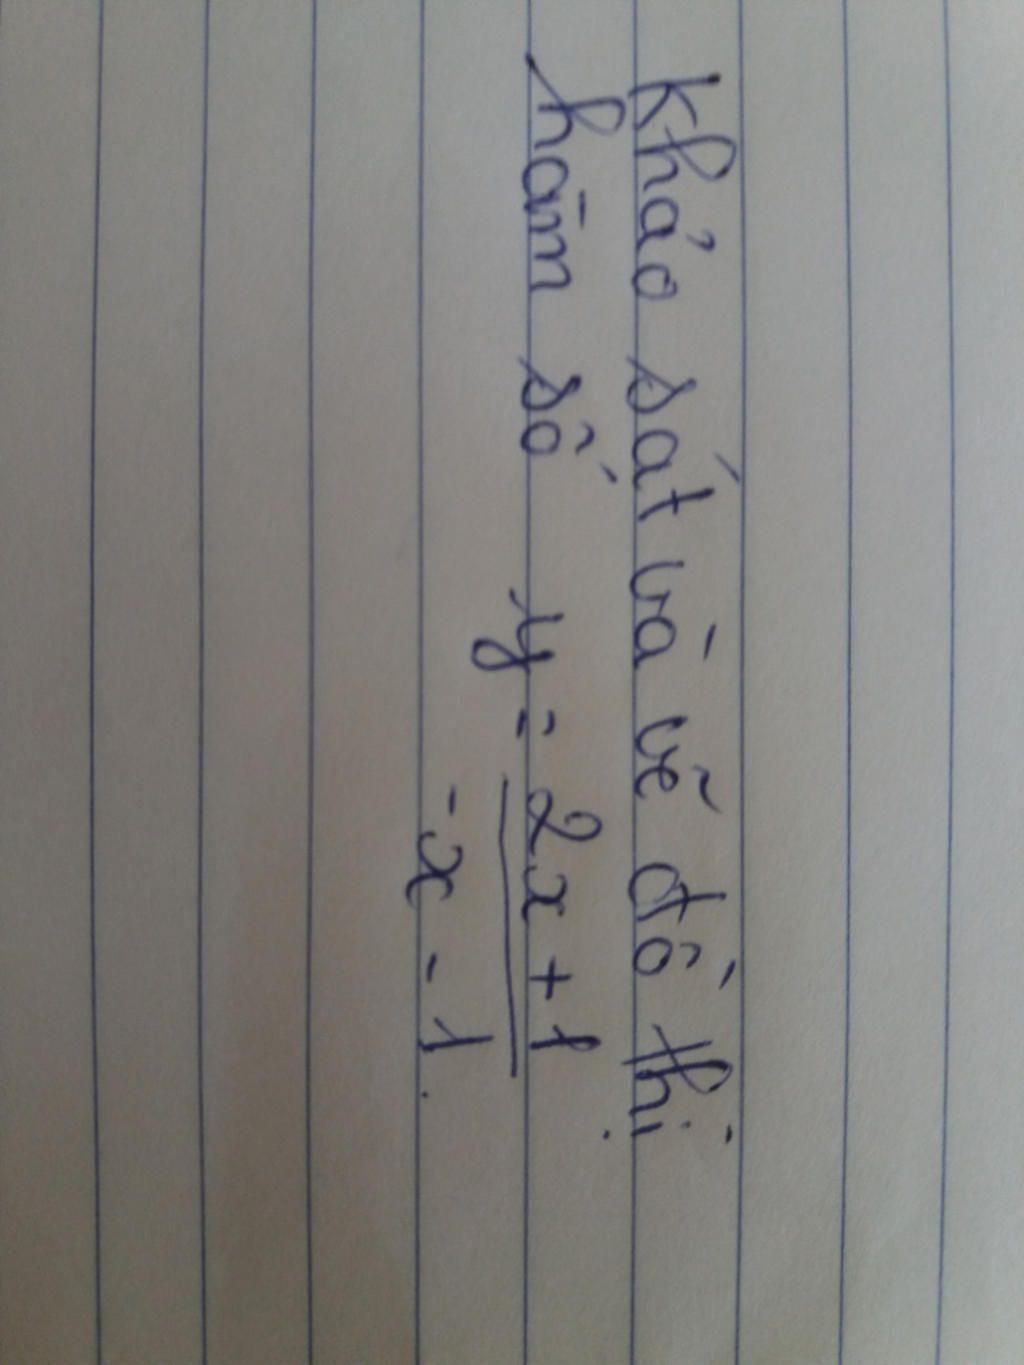 Khảo sát và vẽ đồ thị
hàm số y = 2x + 1
-x - 1.